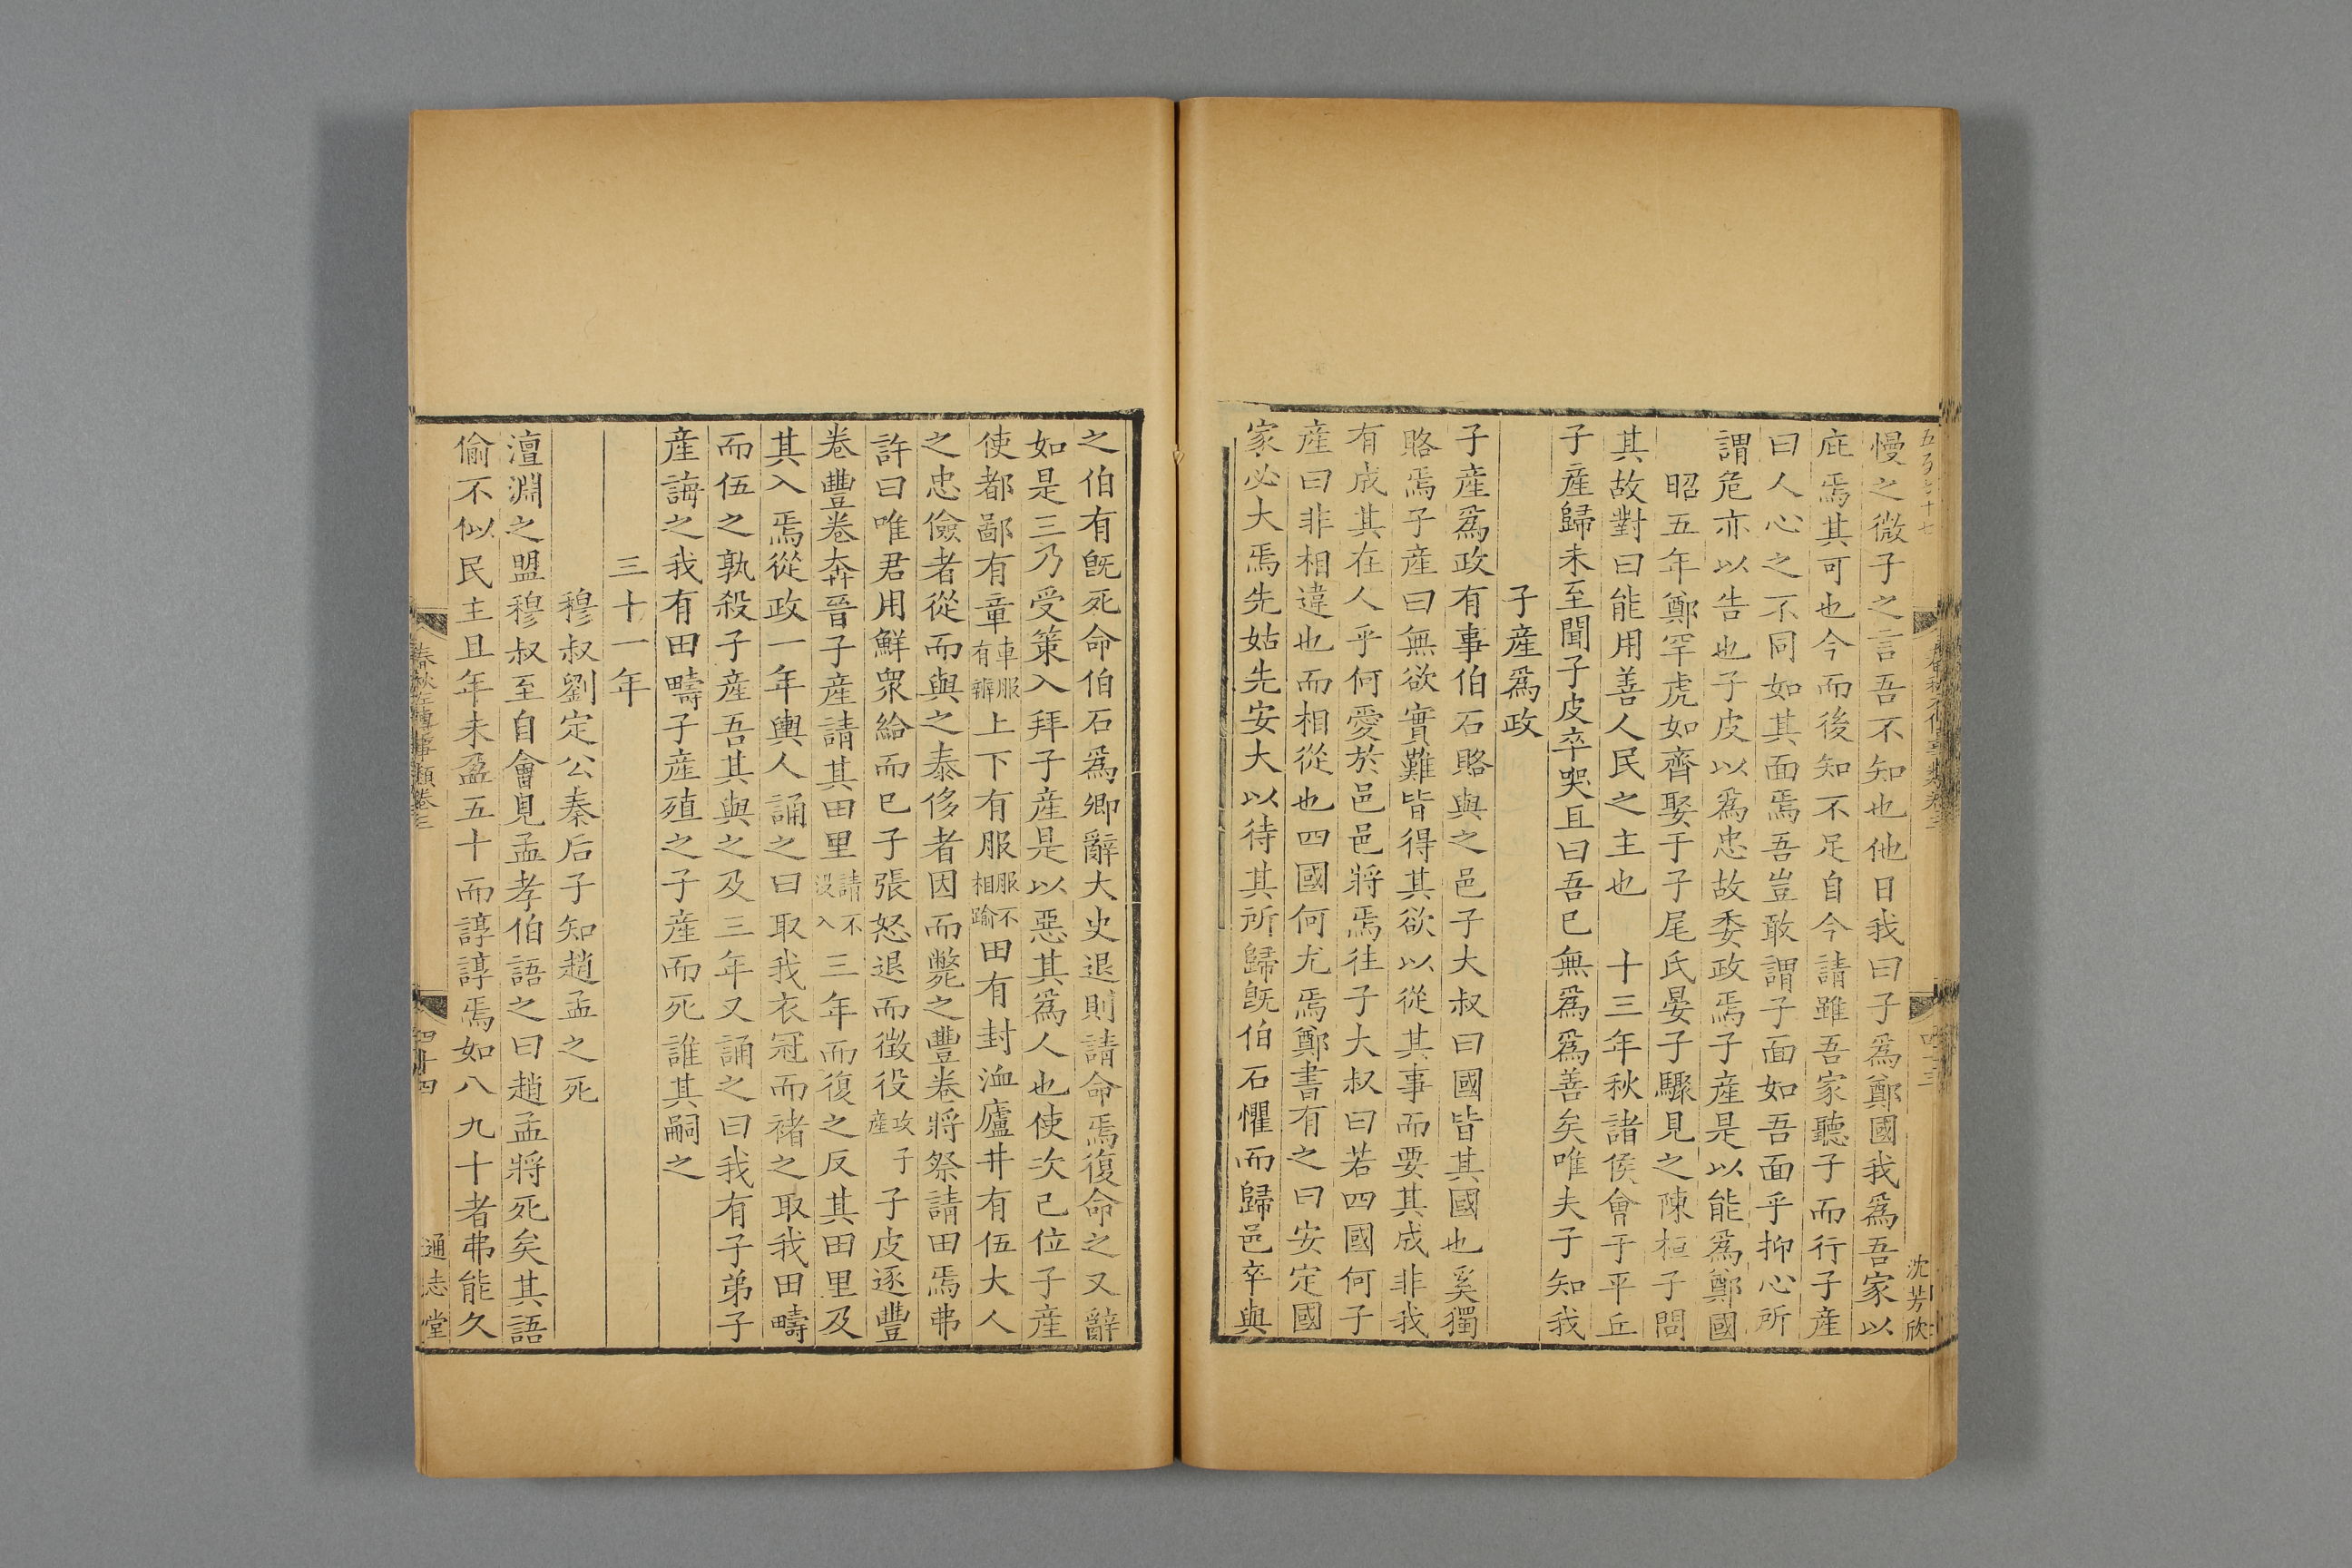 慢之微子之言吾不知也他日我曰子爲鄭國我爲吾家以
庇焉其可也今而後知不足自今請雖吾家聽子而行子產
曰人心之不同如其面焉吾豈敢謂子面如吾面乎抑心所
謂危亦以告也子皮以爲忠故委政焉子產是以能爲鄭國
昭五年鄭罕虎如齊娶于子尾氏晏子驟見之陳桓子問
其故對曰能用善人民之主也　十三年秋諸侯會于平丘
子產歸未至聞子皮卒哭且曰吾已無爲爲善矣唯夫子知我
子產爲政
子產爲政有事伯石賂與之邑子大叔曰國皆其國也奚獨
賂焉子產曰無欲實難皆得其欲以從其事而要其成非我
有成其在人乎何愛於邑邑將焉往子大叔曰若四國何子
產曰非相違也而相從也四國何尤焉鄭書有之曰安定國
家必大焉先姑先安大以待其所歸旣伯石懼而歸邑卒與
沈芳欣
之伯有旣死命伯石爲卿辭大史退則請命焉復命之又辭
如是三乃受策入拜子產是以惡其爲人也使次己位子產
使都鄙有章車服有辨上下有服服不相踰田有封洫廬井有伍大人
之忠儉者從而與之泰侈者因而斃之豐卷將祭請田焉弗
許曰唯君用鮮衆給而已子張怒退而徵役攻子產子皮逐豐
卷豐卷奔晉子產請其田里請不沒入三年而復之反其田里及
其入焉從政一年輿人誦之曰取我衣冠而褚之取我田疇
而伍之孰殺子產吾其與之及三年又誦之曰我有子弟子
產誨之我有田疇子產殖之子產而死誰其嗣之
三十一年
穆叔劉定公秦后子知趙孟之死
澶淵之盟穆叔至自會見孟孝伯語之曰趙孟將死矣其語
偷不似民主且年未盈五十而諄諄焉如八九十者弗能久
春秋左傳事類卷三
四十四
通志堂